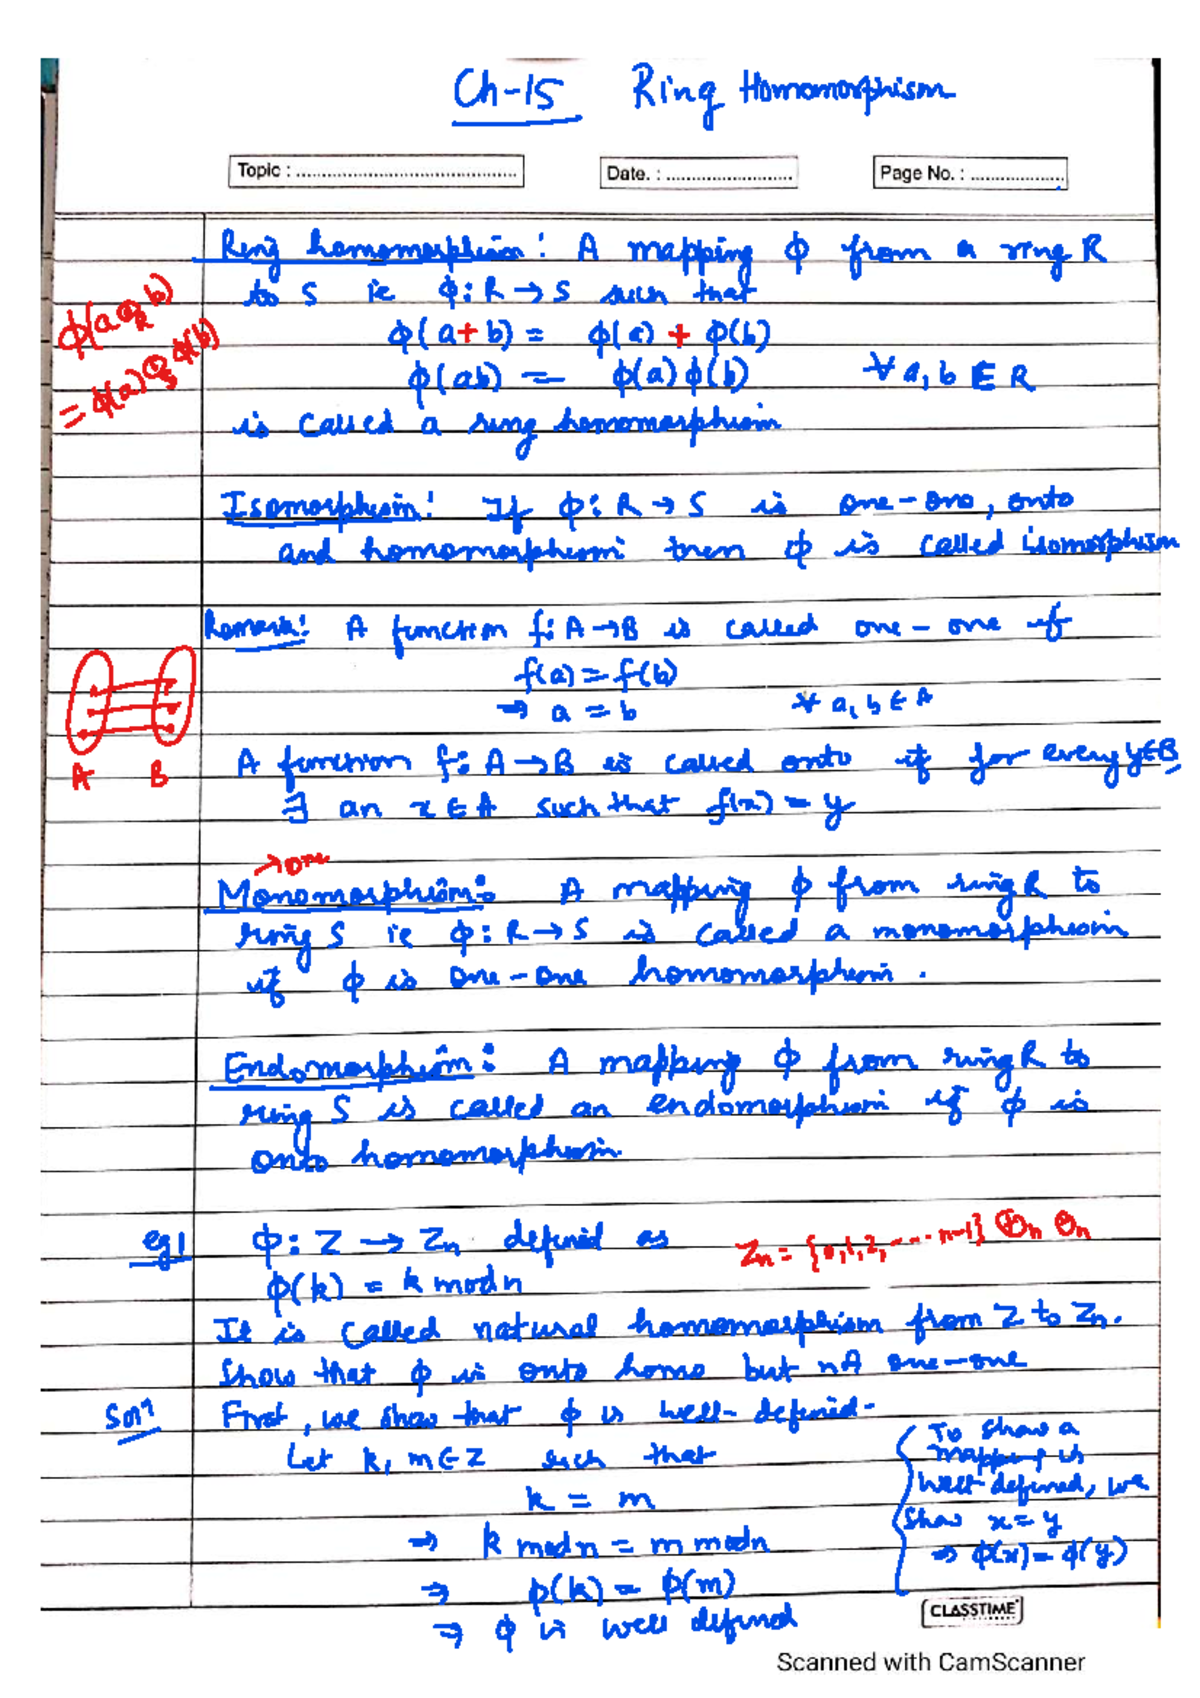 Ch-15 Ring Homomorphism
Topic : ............................................ Date. : ......................... Page No. : ...................
Ring homomorphism: A mapping ϕ from a ring R
to S ie ϕ: R → S such that
ϕ(a+b) = ϕ(a) + ϕ(b)
ϕ(ab) = ϕ(a) ϕ(b) ∀ a, b ∈ R
is called a ring homomorphism
ϕ(a⊙R b)
= ϕ(a) ⊙S ϕ(b)
Isomorphism: If ϕ: R → S is one-one, onto
and homomorphism then ϕ is called isomorphism
Remark: A function f: A→B is called one-one if
f(a) = f(b)
⇒ a = b ∀ a, b ∈ A
A B
A function f: A→B is called onto if for every y∈B,
∃ an x ∈ A such that f(x) = y
→one
Monomorphism: A mapping ϕ from ring R to
ring S ie ϕ: R → S is called a monomorphism
if ϕ is one-one homomorphism.
Endomorphism: A mapping ϕ from ring R to
ring S is called an endomorphism if ϕ is
onto homomorphism
eg1 ϕ: Z → Zn defined as
Zn = {0,1,2,....n-1} ⊕n ⊙n
ϕ(k) = k mod n
It is called natural homomorphism from Z to Zn.
Show that ϕ is onto homo but not one-one
Soln First, we show that ϕ is well-defined-
Let k, m ∈ Z such that
k = m
⇒ k mod n = m mod n
⇒ ϕ(k) = ϕ(m)
⇒ ϕ is well defined
To show a
mapping is
well-defined, we
show x = y
⇒ ϕ(x) = ϕ(y)
CLASSTIME
Scanned with CamScanner